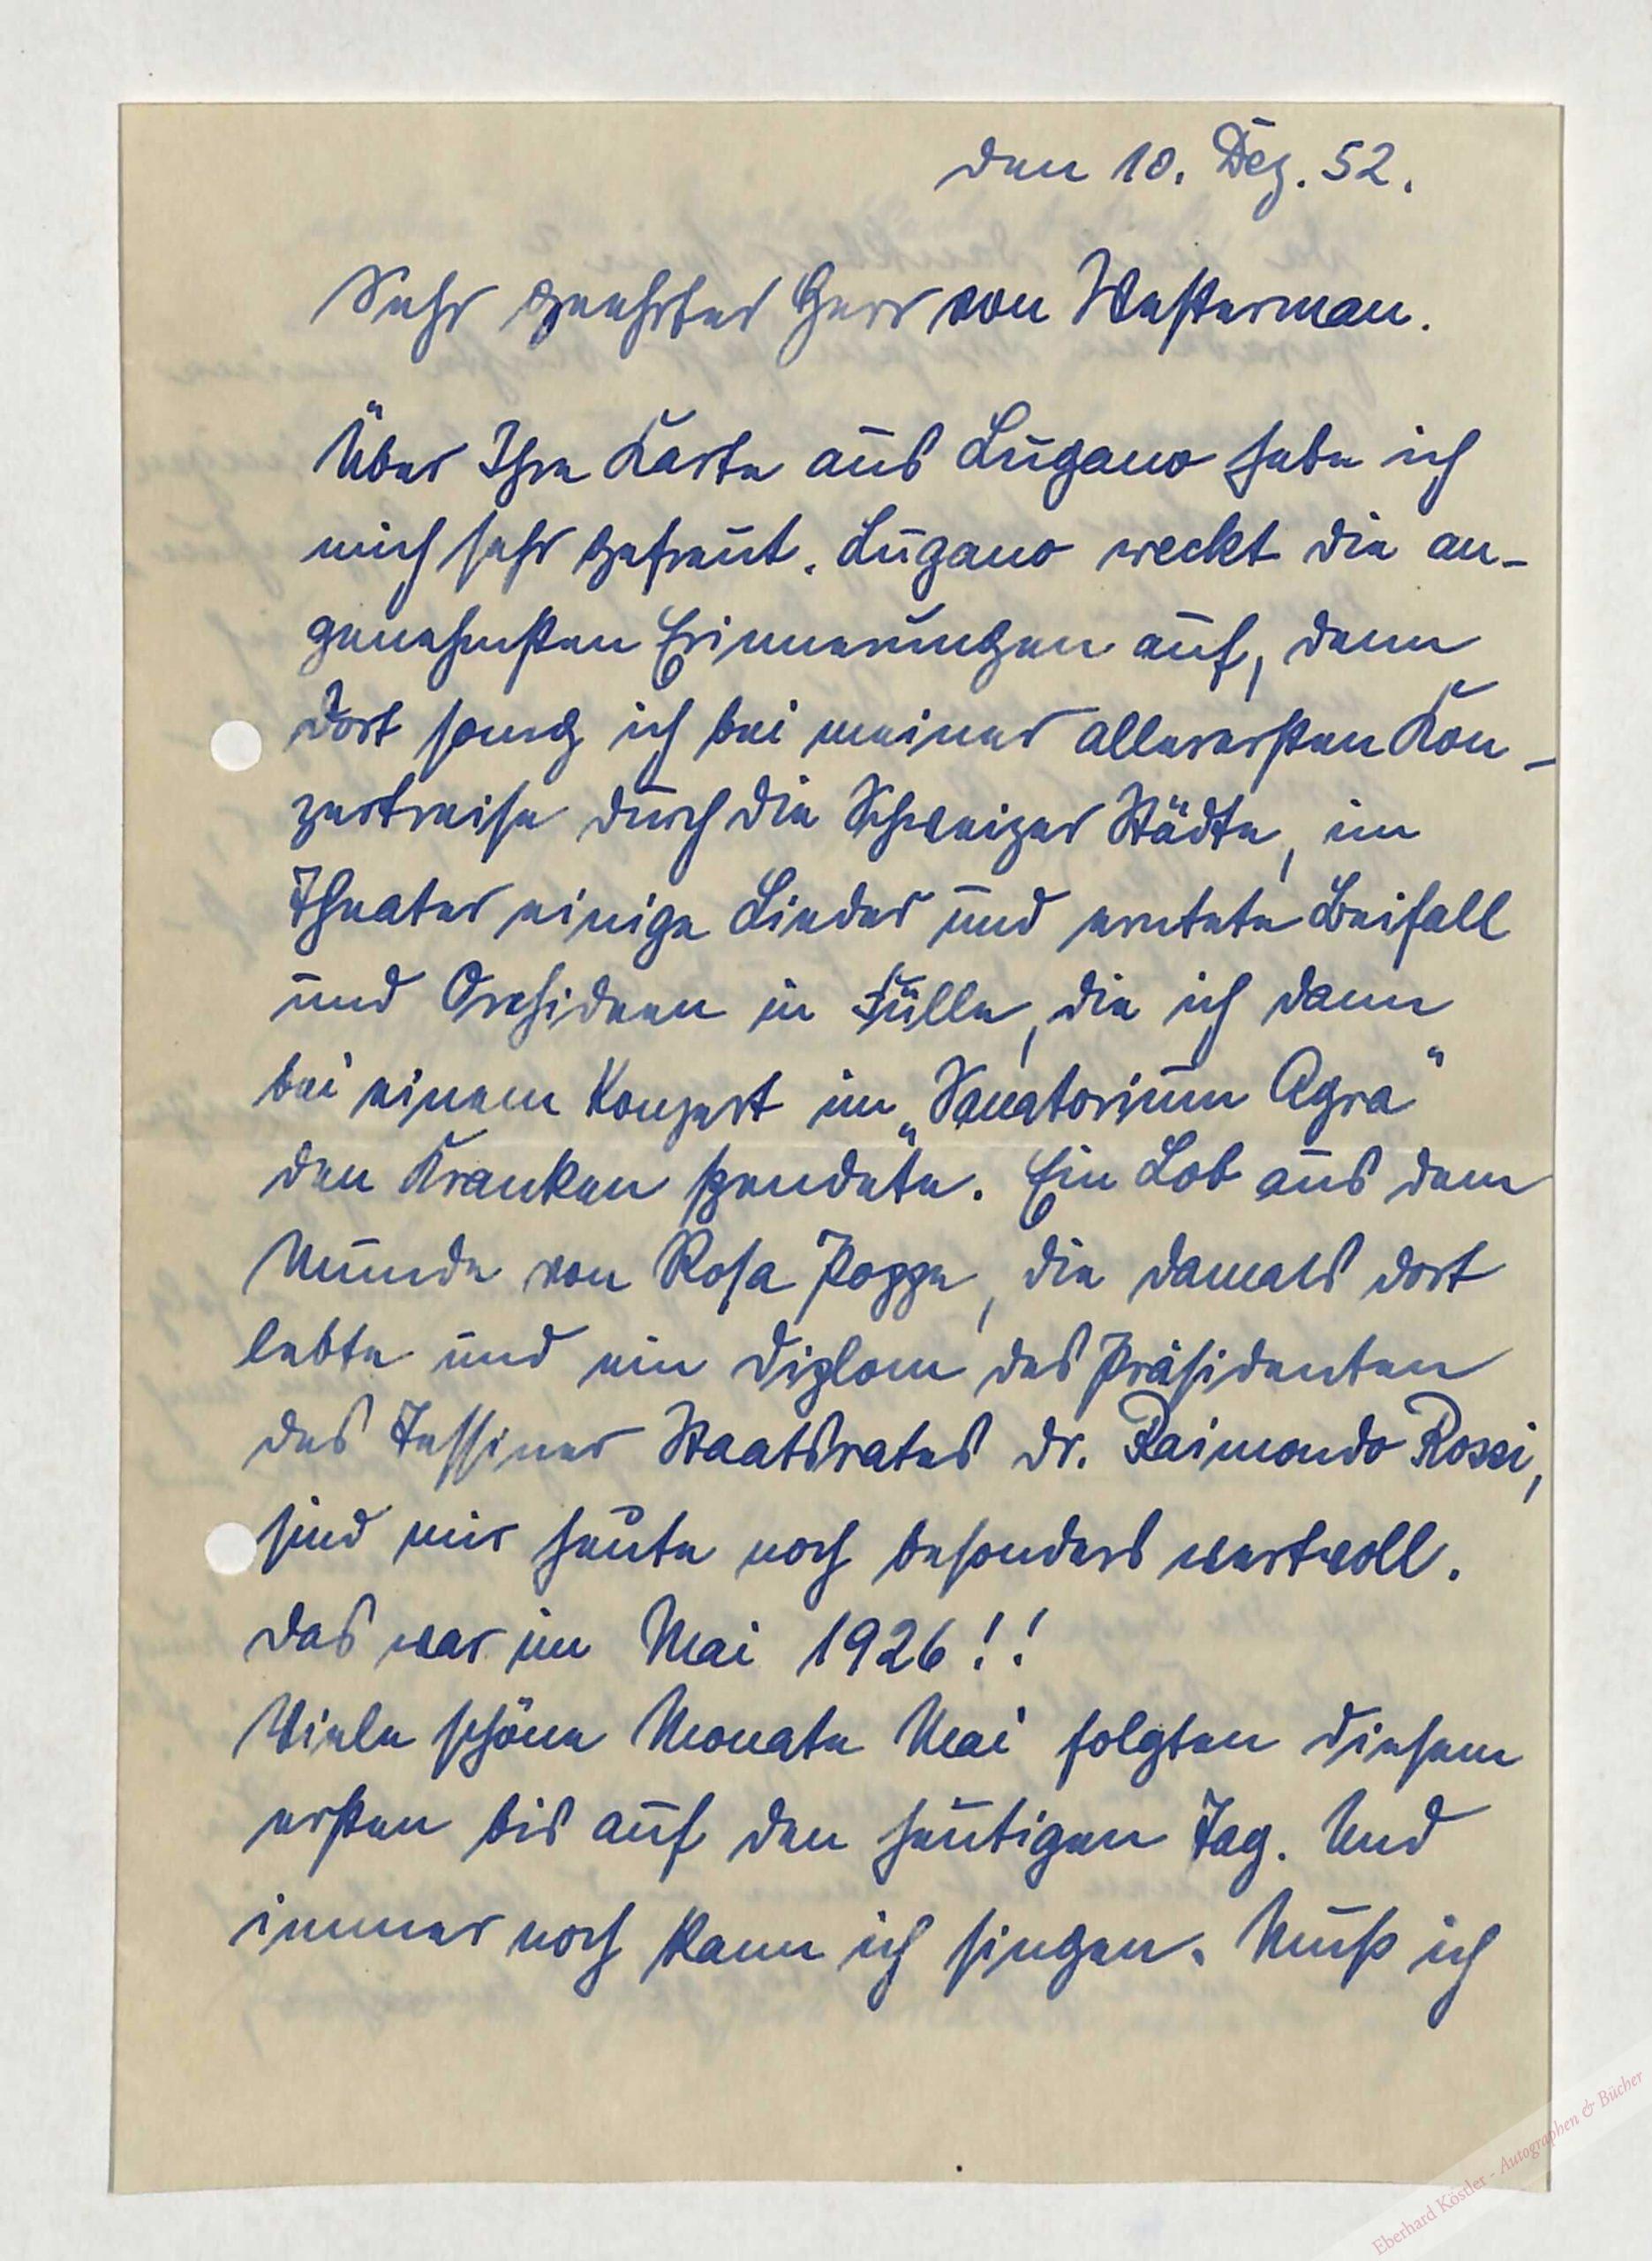 den 10. Dez. 52.
Sehr geehrter Herr von Westerman.
Über Ihre Karte aus Lugano habe ich
mich sehr gefreut. Lugano weckt die an-
genehmsten Erinnerungen auf, denn
dort sang ich bei meiner allerersten Kon-
zertreise durch die Schweizer Städte, im
Theater einige Lieder und erntete Beifall
und Orchideen in Fülle, die ich dann
bei einem Konzert im „Sanatorium Agra"
den Kranken spendete. Ein Lob aus dem
Munde von Rosa Poppe, die damals dort
lebte und ein Diplom des Präsidenten
des Tessiner Staatsrates Dr. Raimondo Rossi,
sind mir heute noch besonders wertvoll.
Das war im Mai 1926!!
Viele schöne Monate Mai folgten diesem
ersten bis auf den heutigen Tag. Und
immer noch kann ich singen. Muß ich
Eberhard Köstler - Autographen & Bücher